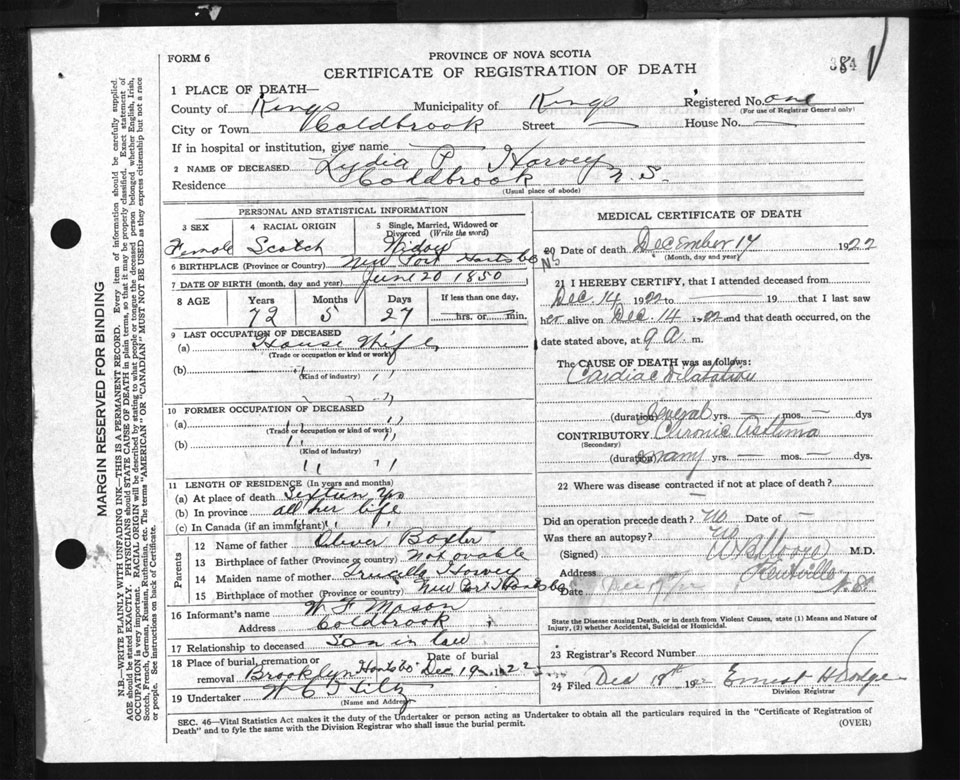 FORM 6
PROVINCE OF NOVA SCOTIA
CERTIFICATE OF REGISTRATION OF DEATH
384
1 PLACE OF DEATH—
County of Kings Municipality of Kings Registered No. one
(For use of Registrar General only)
City or Town Coldbrook Street — House No. —
If in hospital or institution, give name —
2 NAME OF DECEASED Lydia P. Harvey
Residence Coldbrook N. S.
(Usual place of abode)
PERSONAL AND STATISTICAL INFORMATION
3 SEX 4 RACIAL ORIGIN 5 Single, Married, Widowed or Divorced (Write the word)
Female Scotch Widow
6 BIRTHPLACE (Province or Country) New Port Hants Co N.S
7 DATE OF BIRTH (month, day, and year) June 20 1850
8 AGE Years Months Days If less than one day,
72 5 27 hrs. or min.
9 LAST OCCUPATION OF DECEASED
(a) House Wife
(Trade or occupation or kind of work)
(b) " "
(Kind of industry) " "
10 FORMER OCCUPATION OF DECEASED
(a) " "
(Trade or occupation or kind of work)
(b) " "
(Kind of industry)
" "
11 LENGTH OF RESIDENCE (In years and months)
(a) At place of death Sixteen yrs
(b) In province all her life
(c) In Canada (if an immigrant) " "
Parents
12 Name of father Oliver Baxter
13 Birthplace of father (Province or country) Not ovable
14 Maiden name of mother Harvey
15 Birthplace of mother (Province or country) New Port Hants Co
16 Informant's name W F Mason
Address Coldbrook
17 Relationship to deceased Son in law
18 Place of burial, cremation or removal Brooklyn Hants Co Date of burial Dec 19 1922
19 Undertaker W C
(Name and Address)
MEDICAL CERTIFICATE OF DEATH
20 Date of death December 17 1922
(Month, day and year)
21 I HEREBY CERTIFY, that I attended deceased from
Dec. 14 1922 to — 19 that I last saw
her alive on Dec. 14 1922 and that death occurred, on the
date stated above, at 9 a. m.
The CAUSE OF DEATH was as follows:
Cardiac Dilatation
(duration) several yrs. — mos. — dys
CONTRIBUTORY Chronic Asthma
(Secondary)
(duration) many yrs. — mos. — dys
22 Where was disease contracted if not at place of death?
—
Did an operation precede death? no Date of —
Was there an autopsy? no
(Signed) Moore M.D.
Address Kentville N.S.
Date Dec 17/22
State the Disease causing Death, or in death from Violent Causes, state (1) Means and Nature of
Injury, (2) whether Accidental, Suicidal or Homicidal.
23 Registrar's Record Number
24 Filed Dec 18th 192 Ernest H Dodge
Division Registrar
SEC. 46—Vital Statistics Act makes it the duty of the Undertaker or person acting as Undertaker to obtain all the particulars required in the "Certificate of Registration of
Death" and to fyle the same with the Division Registrar who shall issue the burial permit. (OVER)
MARGIN RESERVED FOR BINDING
N.B—WRITE PLAINLY WITH UNFADING INK—THIS IS A PERMANENT RECORD. Every item of information should be carefully supplied.
AGE should be stated EXACTLY. PHYSICIANS should STATE CAUSE OF DEATH in plain terms, so that it may be properly classified. Exact statement of
OCCUPATION is very important. RACIAL ORIGIN will be described by stating to what people or tongue the deceased person belonged whether English, Irish,
Scotch, French, German, Russian, Ruthenian, etc. The terms "AMERICAN" OR "CANADIAN" MUST NOT BE USED as they express citizenship but not a race
or people. See instructions on back of Certificate.